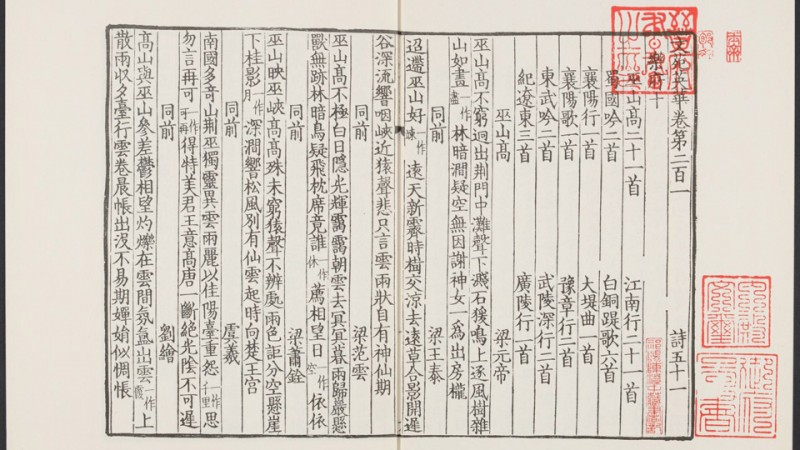 文苑英華卷第二百一　詩五十一
樂府十
巫山高二十一首　江南行二十一首
蜀國吟二首　白銅鞮歌六首
襄陽行一首　大堤曲一首
襄陽歌一首　豫章行二首
東武吟二首　武陵深行二首
紀遼東三首　廣陵行一首
巫山高　梁元帝
巫山高不窮迥出荆門中灘聲下濺石猨鳴上逐風樹雜
山如畫一作盡林暗澗疑空無因謝神女一為出房櫳
同前　梁王泰
迢遞巫山好一作竦遠天新霽時樹交涼去遠草合影開遲
谷深流響咽峽近猿聲悲只言雲雨狀自有神仙期
同前　梁范雲
巫山高不極白日隱光輝靄靄朝雲去冥冥暮雨歸巖懸
獸無跡林暗鳥疑飛枕席竟誰一作休薦相望日一作空依依
同前　梁蕭銓
巫山映巫峽高高殊未窮猿聲不辨處雨色詎分空懸崖
下桂影一作月深澗響松風別有仙雲起時向楚王宫
同前　虞羲
南國多奇山荆巫獨靈異雲雨麗以佳陽臺重怨一作千里思
勿言再可一作可再得特美君王意高唐一斷絶光陰不可遲
同前　劉繪
高山與巫山參差鬱相望灼爍在雲間氛氳出雲一作霞上
散雨收夕臺行雲卷晨帳出没不易期嬋娟似惆悵